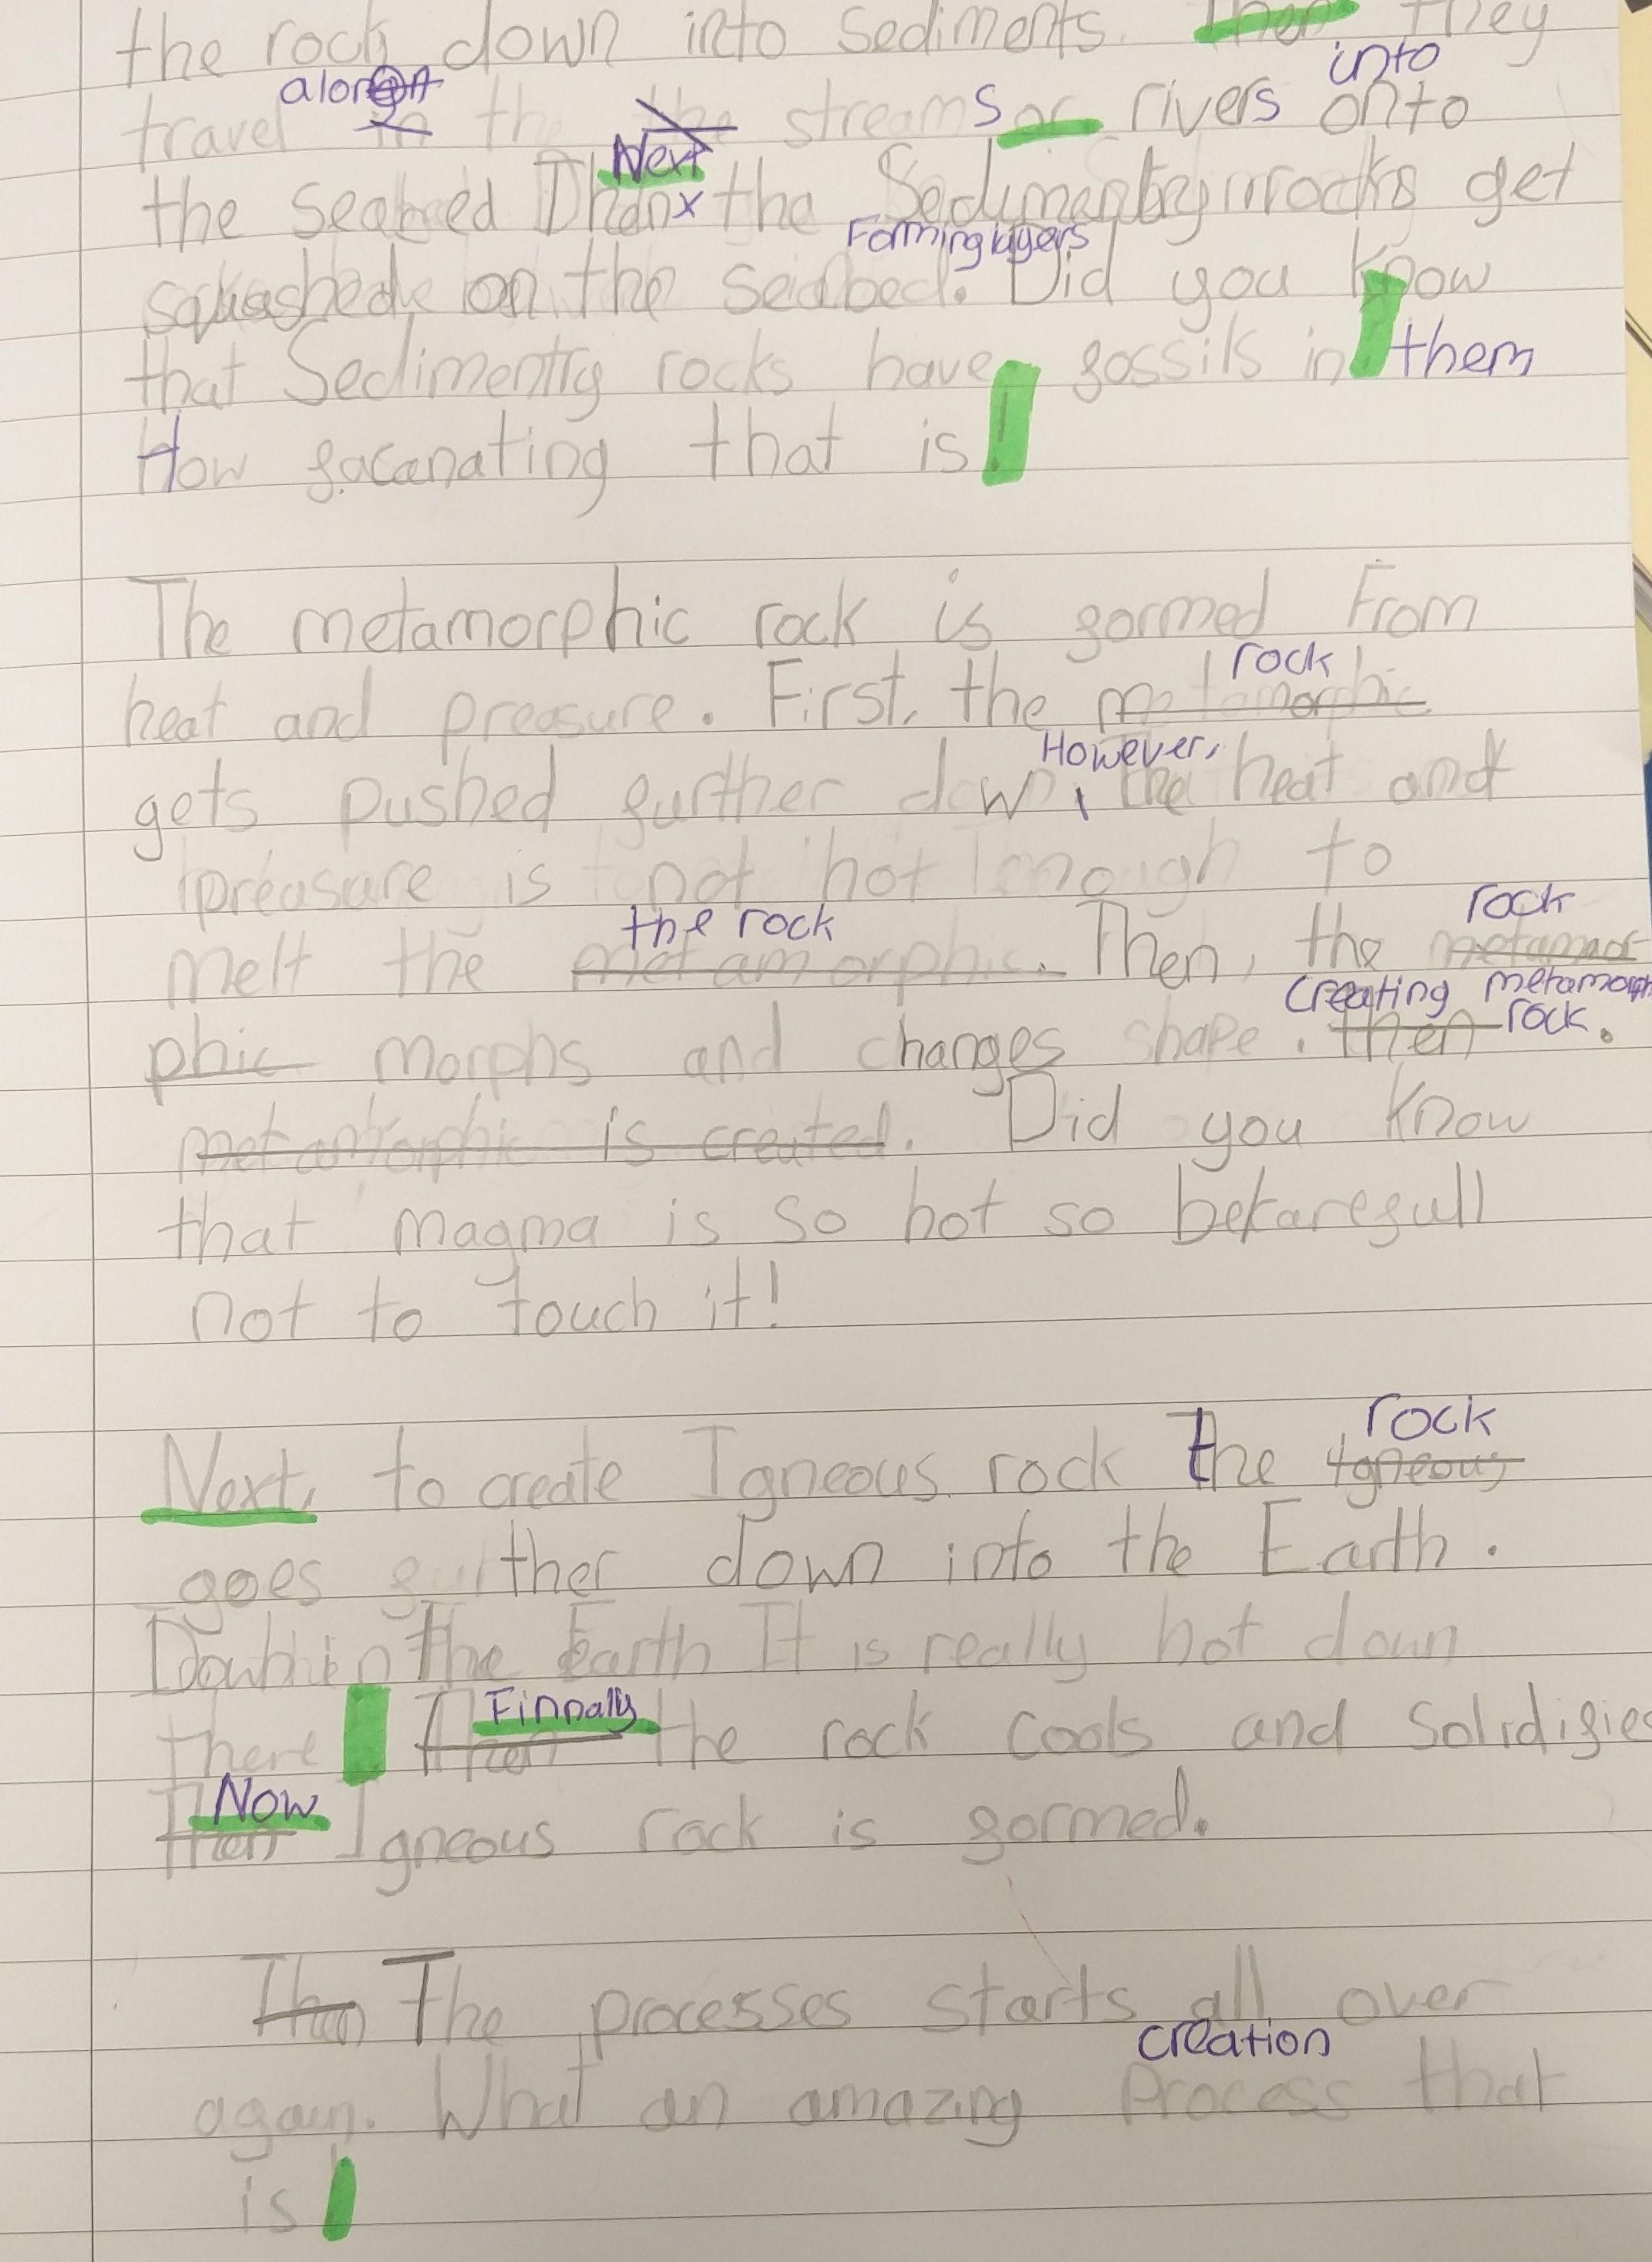 the rock down into sediments. Then they
along
into
travel in the the streams or rivers onto
Next
the seabed Then the Sedimentry rocks get
Forming layers
squashed on the seabed. Did you know
that Sedimentry rocks have fossils in them
How facanating that is!
The metamorphic rock is formed From
rock
heat and preasure. First, the metamorphic
However,
gets pushed further down, the heat and
preasure is not hot enough to
the rock
rock
melt the metamorphic. Then, the metamor
creating metamorph
phic morphs and changes shape. then rock.
metamorphic is created. Did you know
that magma is so hot so bekarefull
not to touch it!
rock
Next, to create Igneous rock the igneous
goes further down into the Earth.
Down in the Earth It is really hot down
Finnaly
there Then the rock cools and solidifies
Now
Then Igneous rock is formed.
Then The processes starts all over
creation
again. What an amazing process that
is!